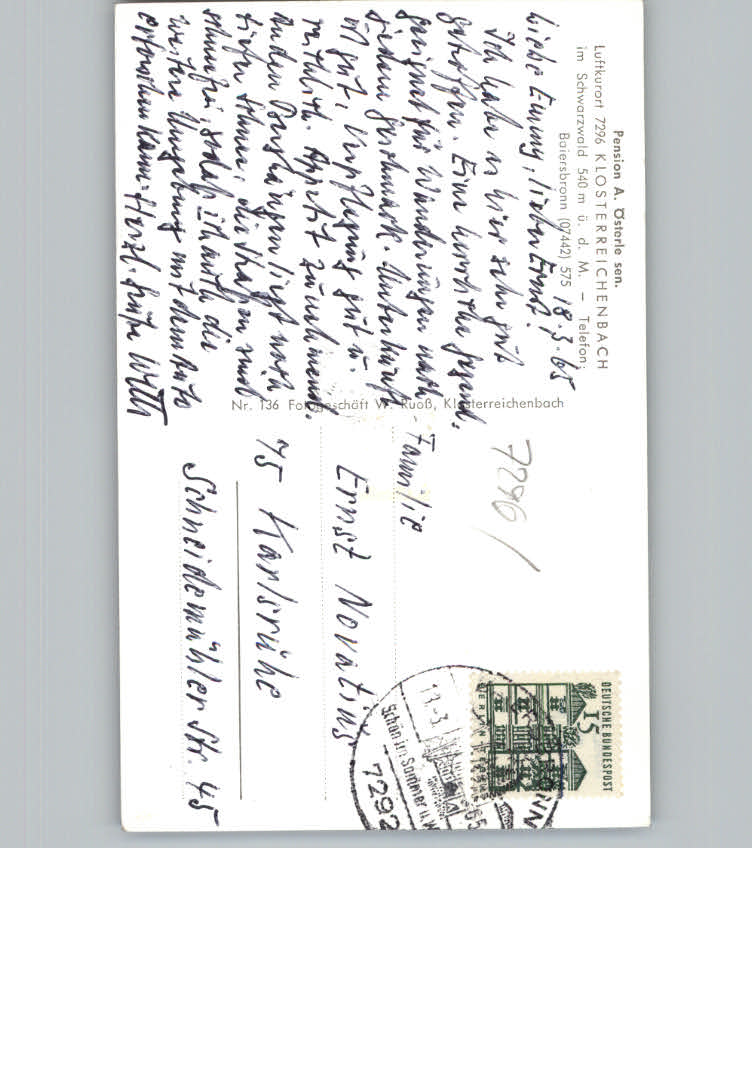 Pension A. Österle sen.
Luftkurort 7296 KLOSTERREICHENBACH
im Schwarzwald 540 m ü. d. M. – Telefon:
Baiersbronn (07442) 575
18.3.65
Liebe Emmy, lieber Ernst!
Ich habe es hier sehr gut
getroffen. Eine herrliche Gegend,
geeignet für Wanderungen nach
jedem Geschmack. Unterkunft
ist gut, Verpflegung gut u.
reichlich. Appetit zunehmend.
An den Berghängen liegt noch
tiefer Schnee, die Straßen sind
schneefrei, sodaß ich auch die
weitere Umgebung mit dem Auto
erforschen kann. Herzl. Grüße Willi
Nr. 136 Fotogeschäft W. Ruoß, Klosterreichenbach
7296
Familie
Ernst Novatius
75 Karlsruhe
Schneidemühler Str. 45
DEUTSCHE BUNDESPOST
15
BERLIN TEGEL
18.-3.65
Schön im Sommer u. W
7292
NN